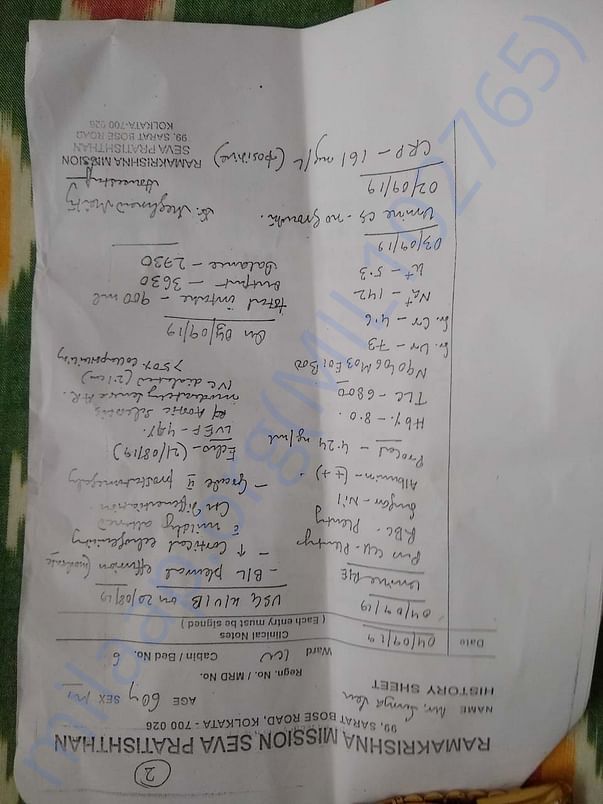 2
RAMAKRISHNA MISSION SEVA PRATISHTHAN
99, SARAT BOSE ROAD, KOLKATA - 700 026
HISTORY SHEET
NAME Mr. AGE 60y SEX M
Regn. No. / MRD No.
Ward ICU Cabin / Bed No. 6
Date
Clinical Notes
( Each entry must be signed )
04/09/19
04/09/19
Urine R/E
Pus cell - Plenty
RBC - Plenty
Sugar - Nil
Albumin - (+)
Procal - 4.24 ng/ml
Hb% - 8.0
TLC - 6800
N90 L06 M03 E01 B00
Sr. Ur - 73
Sr. Cr - 4.6
Na+ - 142
K+ - 5.3
03/09/19
Urine CS - no growth.
02/09/19
CRP - 161 mg/L (positive)
USG K/U/B on 20/08/19
- B/L pleural effusion (moderate
- ↑ Cortical echogenicity
c̄ mildly altered
CM differentiation.
- Grade II prostatomegaly
Echo - (21/08/19)
LVEF - 49%.
Aortic sclerosis
moderately severe AR.
IVC dialated (21 cm)
>50% collapsibility
On 04/09/19
total intake - 900 ml
output - 3630
Balance - 2730
RAMAKRISHNA MISSION
SEVA PRATISHTHAN
99, SARAT BOSE ROAD
KOLKATA-700 026
milaap.org(MIL102765)